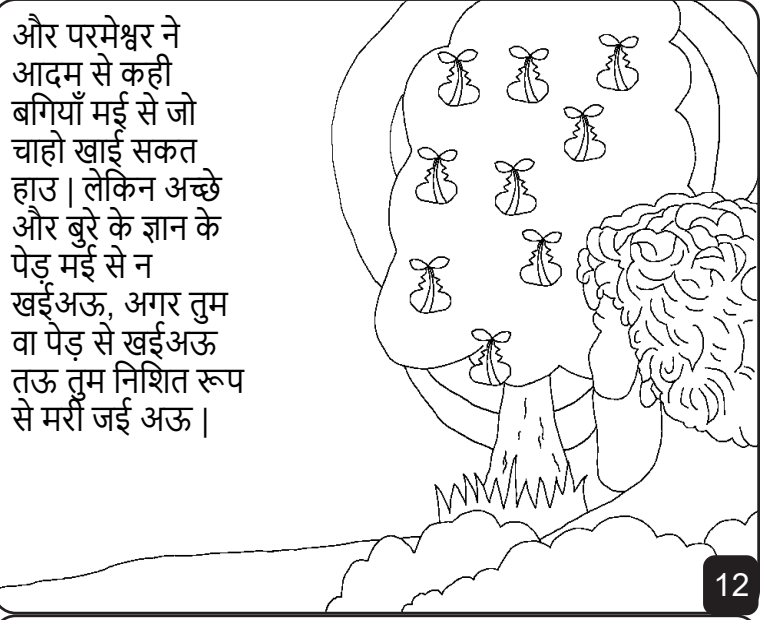 और परमेश्वर ने
आदम से कही
बगियाँ मई से जो
चाहो खाई सकत
हाउ | लेकिन अच्छे
और बुरे के ज्ञान के
पेड़ मई से न
खईअऊ, अगर तुम
वा पेड़ से खईअऊ
तऊ तुम निशित रूप
से मरी जई अऊ |
12